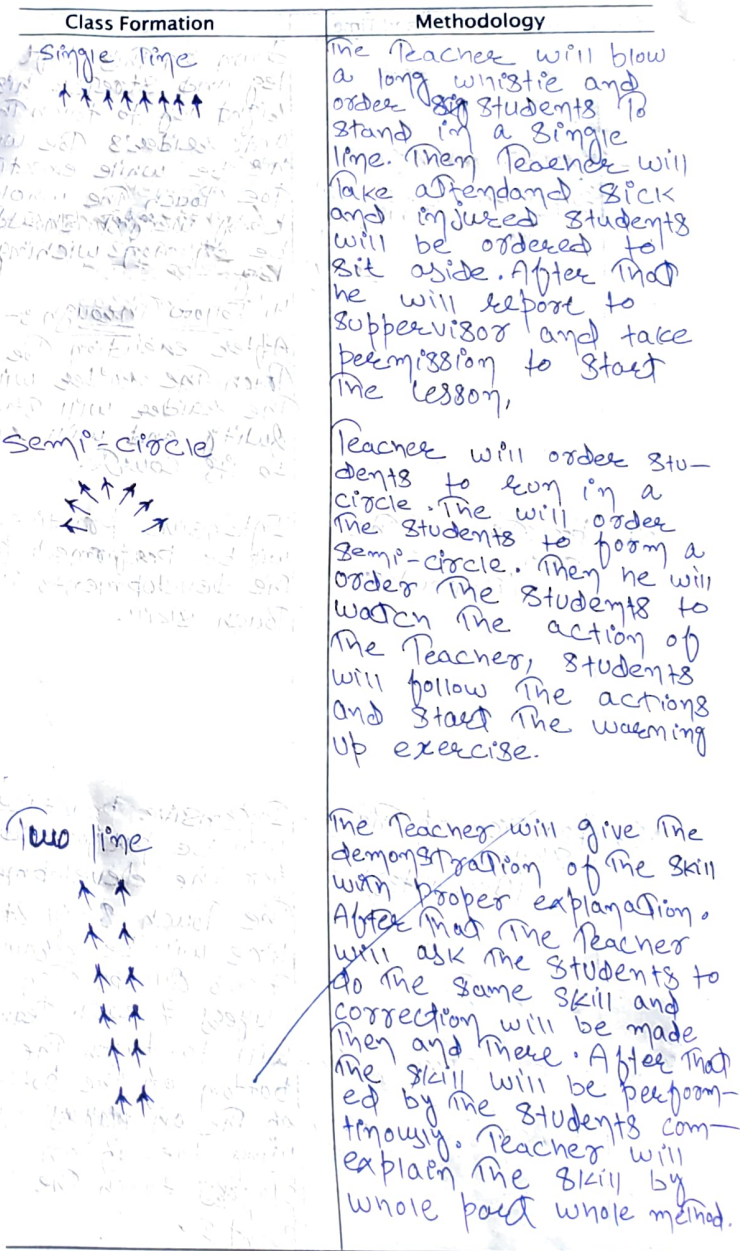 Class Formation
Methodology
Single line
The Teacher will blow
a long whistle and
order students to
stand in a single
line. Then Teacher will
Take attendand sick
and injured students
will be ordered to
sit aside. After That
he will report to
suppervisor and take
permission to start
The lesson,
Semi-circle
Teacher will order stu-
dents to run in a
circle. The will order
The students to form a
semi-circle. Then he will
order The students to
watch The action of
The Teacher, students
will follow The actions
and start The warming
up exercise.
Two line
The Teacher will give The
demonstration of The skill
with proper explanation.
After That The Teacher
will ask The students to
do The same skill and
correction will be made
Then and There. After That
The skill will be perfoom-
ed by The students com-
tinously. Teacher will
explain The skill by
whole part whole method.